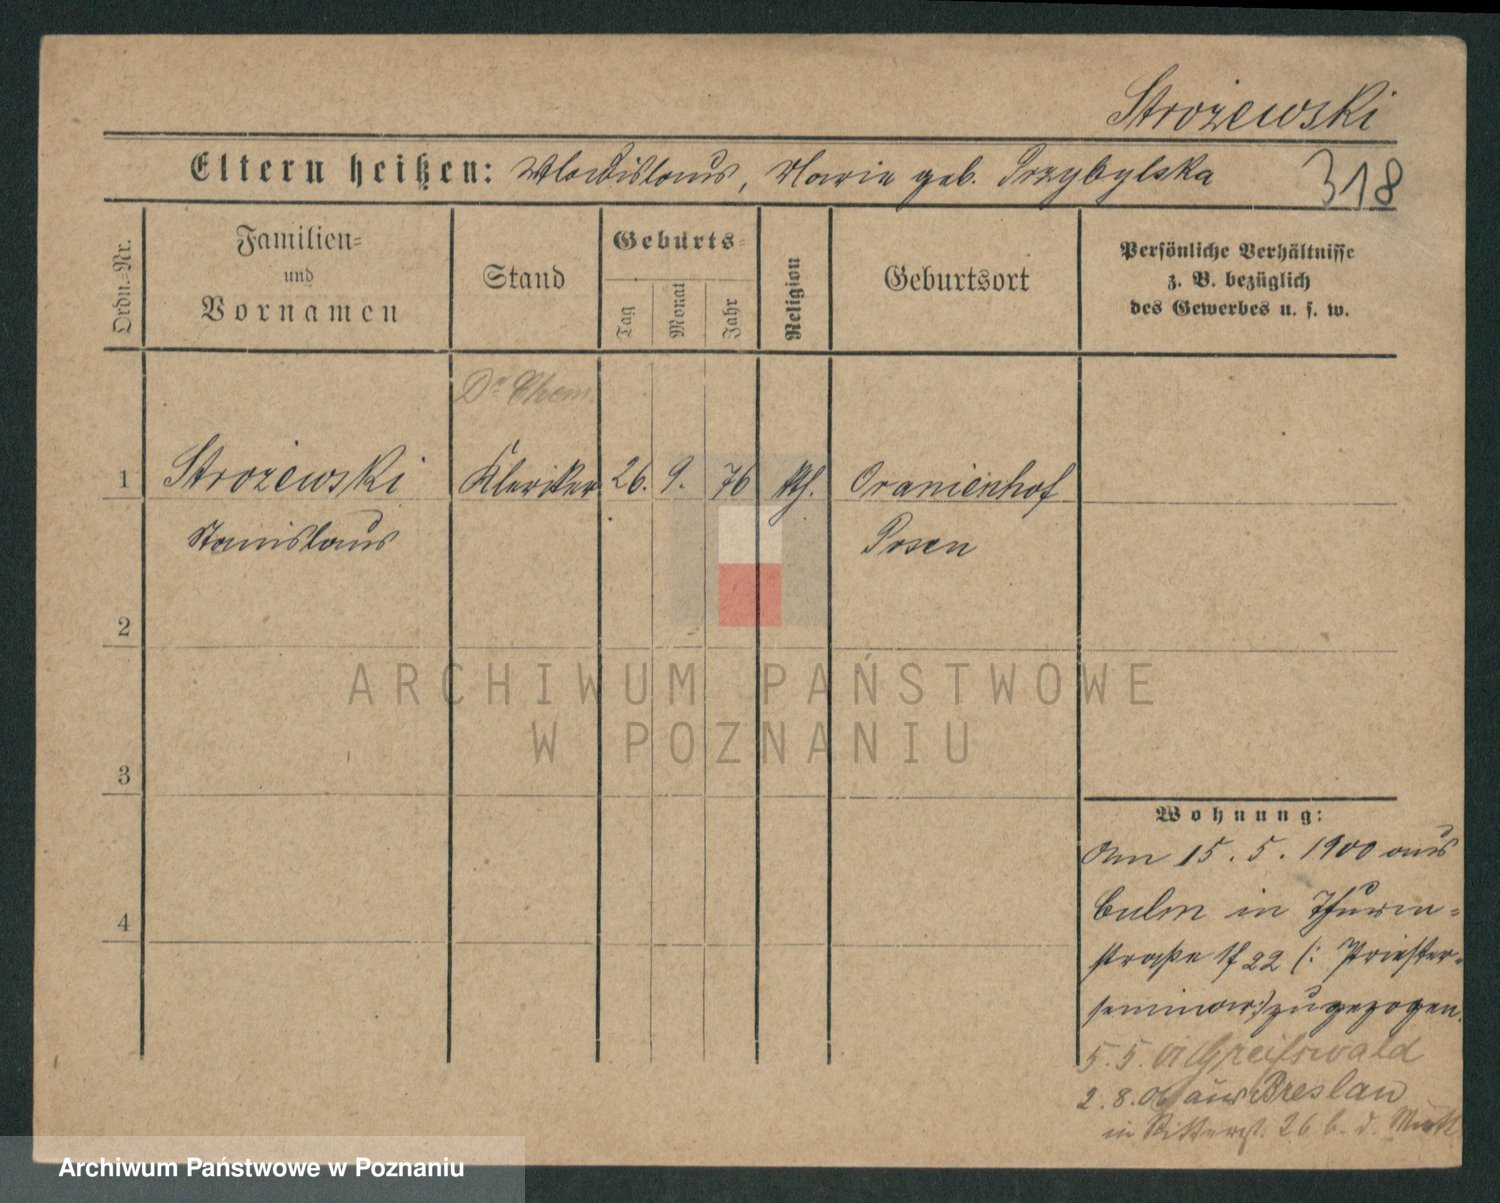 Strożewski
Eltern heißen: Wladislaus, Marie geb. Przybylska
318
Ordn.-Nr.
Familien-
und
Vornamen
Stand
Geburts-
Tag
Monat
Jahr
Religion
Geburtsort
Persönliche Verhältnisse
z. B. bezüglich
des Gewerbes u. s. w.
Dr Chem.
1 Strożewski Kleriker 26. 9. 76 kth. Oranienhof
Stanislaus Posen
2
ARCHIWUM PAŃSTWOWE
W POZNANIU
3
Wohnung:
Am 15. 5. 1900 aus
Culm in Thurm-
straße 22 (: Priester-
seminar:) zugezogen.
4
5. 5. 01 Greifswald
2. 8. 06 aus Breslau
in Ritterst. 26 b. d.
Archiwum Państwowe w Poznaniu